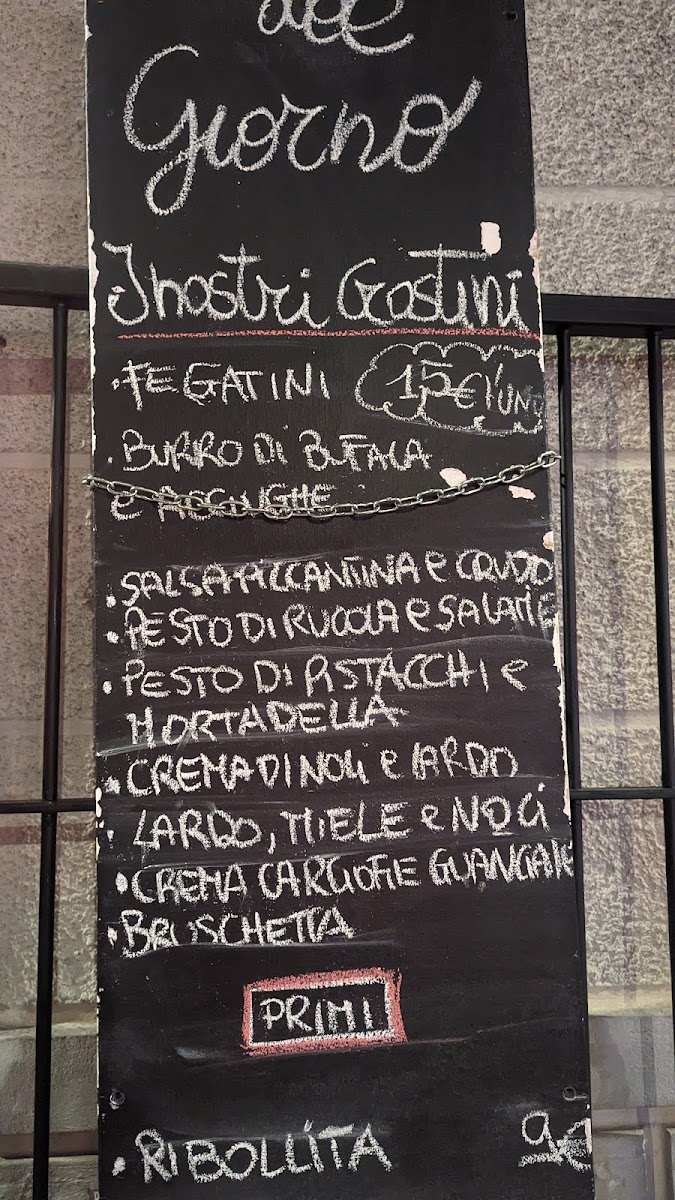 del
Giorno
I nostri Crostini
· FEGATINI 15€ l'UNO
· BURRO DI BUFALA
e ACCIUGHE
· SALSA PICCANTINA e CRUDO
· PESTO DI RUCOLA e SALAME
· PESTO DI PISTACCHI e
MORTADELLA
· CREMA DI NOCI e LARDO
· LARDO, MIELE e NOCI
· CREMA CARCIOFI E GUANCIALE
· BRUSCHETTA
PRIMI
· RIBOLLITA 9€